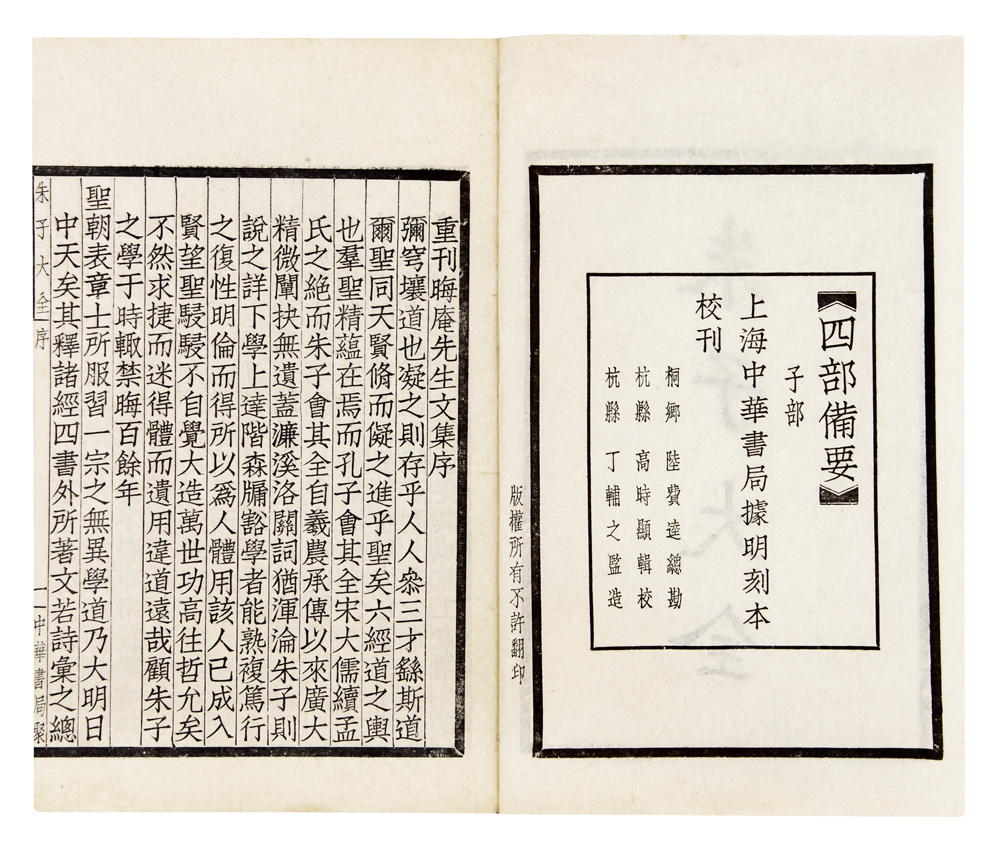 四部備要
子部
上海中華書局據明刻本
校刊
桐鄉 陸費逵總勘
杭縣 高時顯輯校
杭縣 丁輔之監造
版權所有不許翻印
重刊晦庵先生文集序
彌穹壤道也凝之則存乎人人叅三才繇斯道
爾聖同天賢脩而儗之進乎聖矣六經道之輿
也羣聖精蘊在焉而孔子會其全宋大儒續孟
氏之絕而朱子會其全自羲農承傳以來廣大
精微闡抉無遺蓋濂溪洛關詞猶渾淪朱子則
說之詳下學上達階森牖豁學者能熟複篤行
之復性明倫而得所以爲人體用該人已成入
賢望聖駸駸不自覺大造萬世功高往哲允矣
不然求捷而迷得體而遺用違道遠哉顧朱子
之學于時輙禁晦百餘年
聖朝表章士所服習一宗之無異學道乃大明日
中天矣其釋諸經四書外所著文若詩彙之總
朱子大全 序 一 中華書局聚